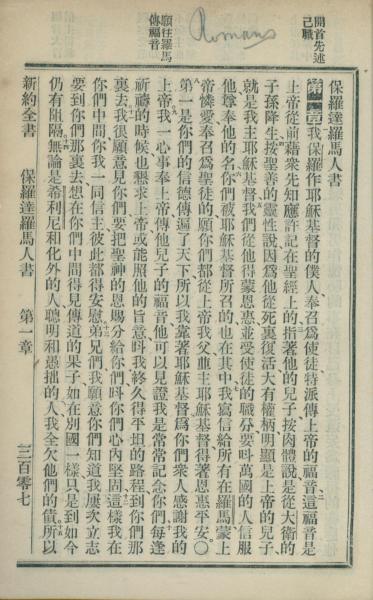 Romans
開首先述
己職
願往羅馬
傳福音
保羅達羅馬人書
第一章我保羅作耶穌基督的僕人奉召爲使徒特派傳上帝的福音這福音是
上帝從前藉衆先知應許記在聖經上的指著他的兒子按肉體說是從大衛的
子孫降生按聖善的靈性說因爲他從死裏復活大有權柄明顯是上帝的兒子
就是我主耶穌基督我們從他得蒙恩惠並受使徒的職分要呌萬國的人信服
他尊奉他的名你們被耶穌基督所召的也在其中我寫信給所有在羅馬蒙上
帝憐愛奉召爲聖徒的願你們都從上帝我父並主耶穌基督得著恩惠平安〇
第一是你們的信德傳遍了天下所以我靠著耶穌基督爲你們衆人感謝我的
上帝我一心事奉上帝傳他兒子的福音他可以見證我是常常記念你們每逢
祈禱的時候也懇求上帝或能照他的旨意呌我終久得平坦的路程到你們那
裏去我很願意見你們要把聖神的恩賜分給你們呌你們心內堅固這樣我在
你們中間你我一同信主彼此都得安慰弟兄們我願意你們知道我屢次立志
要到你們那裏去想在你們中間得見傳道的果子如在別國一樣只是到如今
仍有阻隔無論是希利尼和化外的人聰明和愚拙的人我全欠他們的債所以
新約全書
保羅達羅馬人書
第一章
三百零七